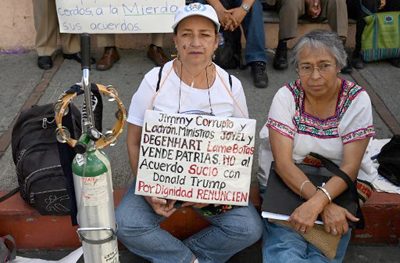 Cerdos, a la Mierda
sus acuerdos.
Jimmy Corrupto y
Ladrón. Ministros JOVEL y
DEGENHART LameBotas
VENDE PATRIAS. NO al
Acuerdo SUCIO con
Donald Trump
Por Dignidad RENUNCIEN